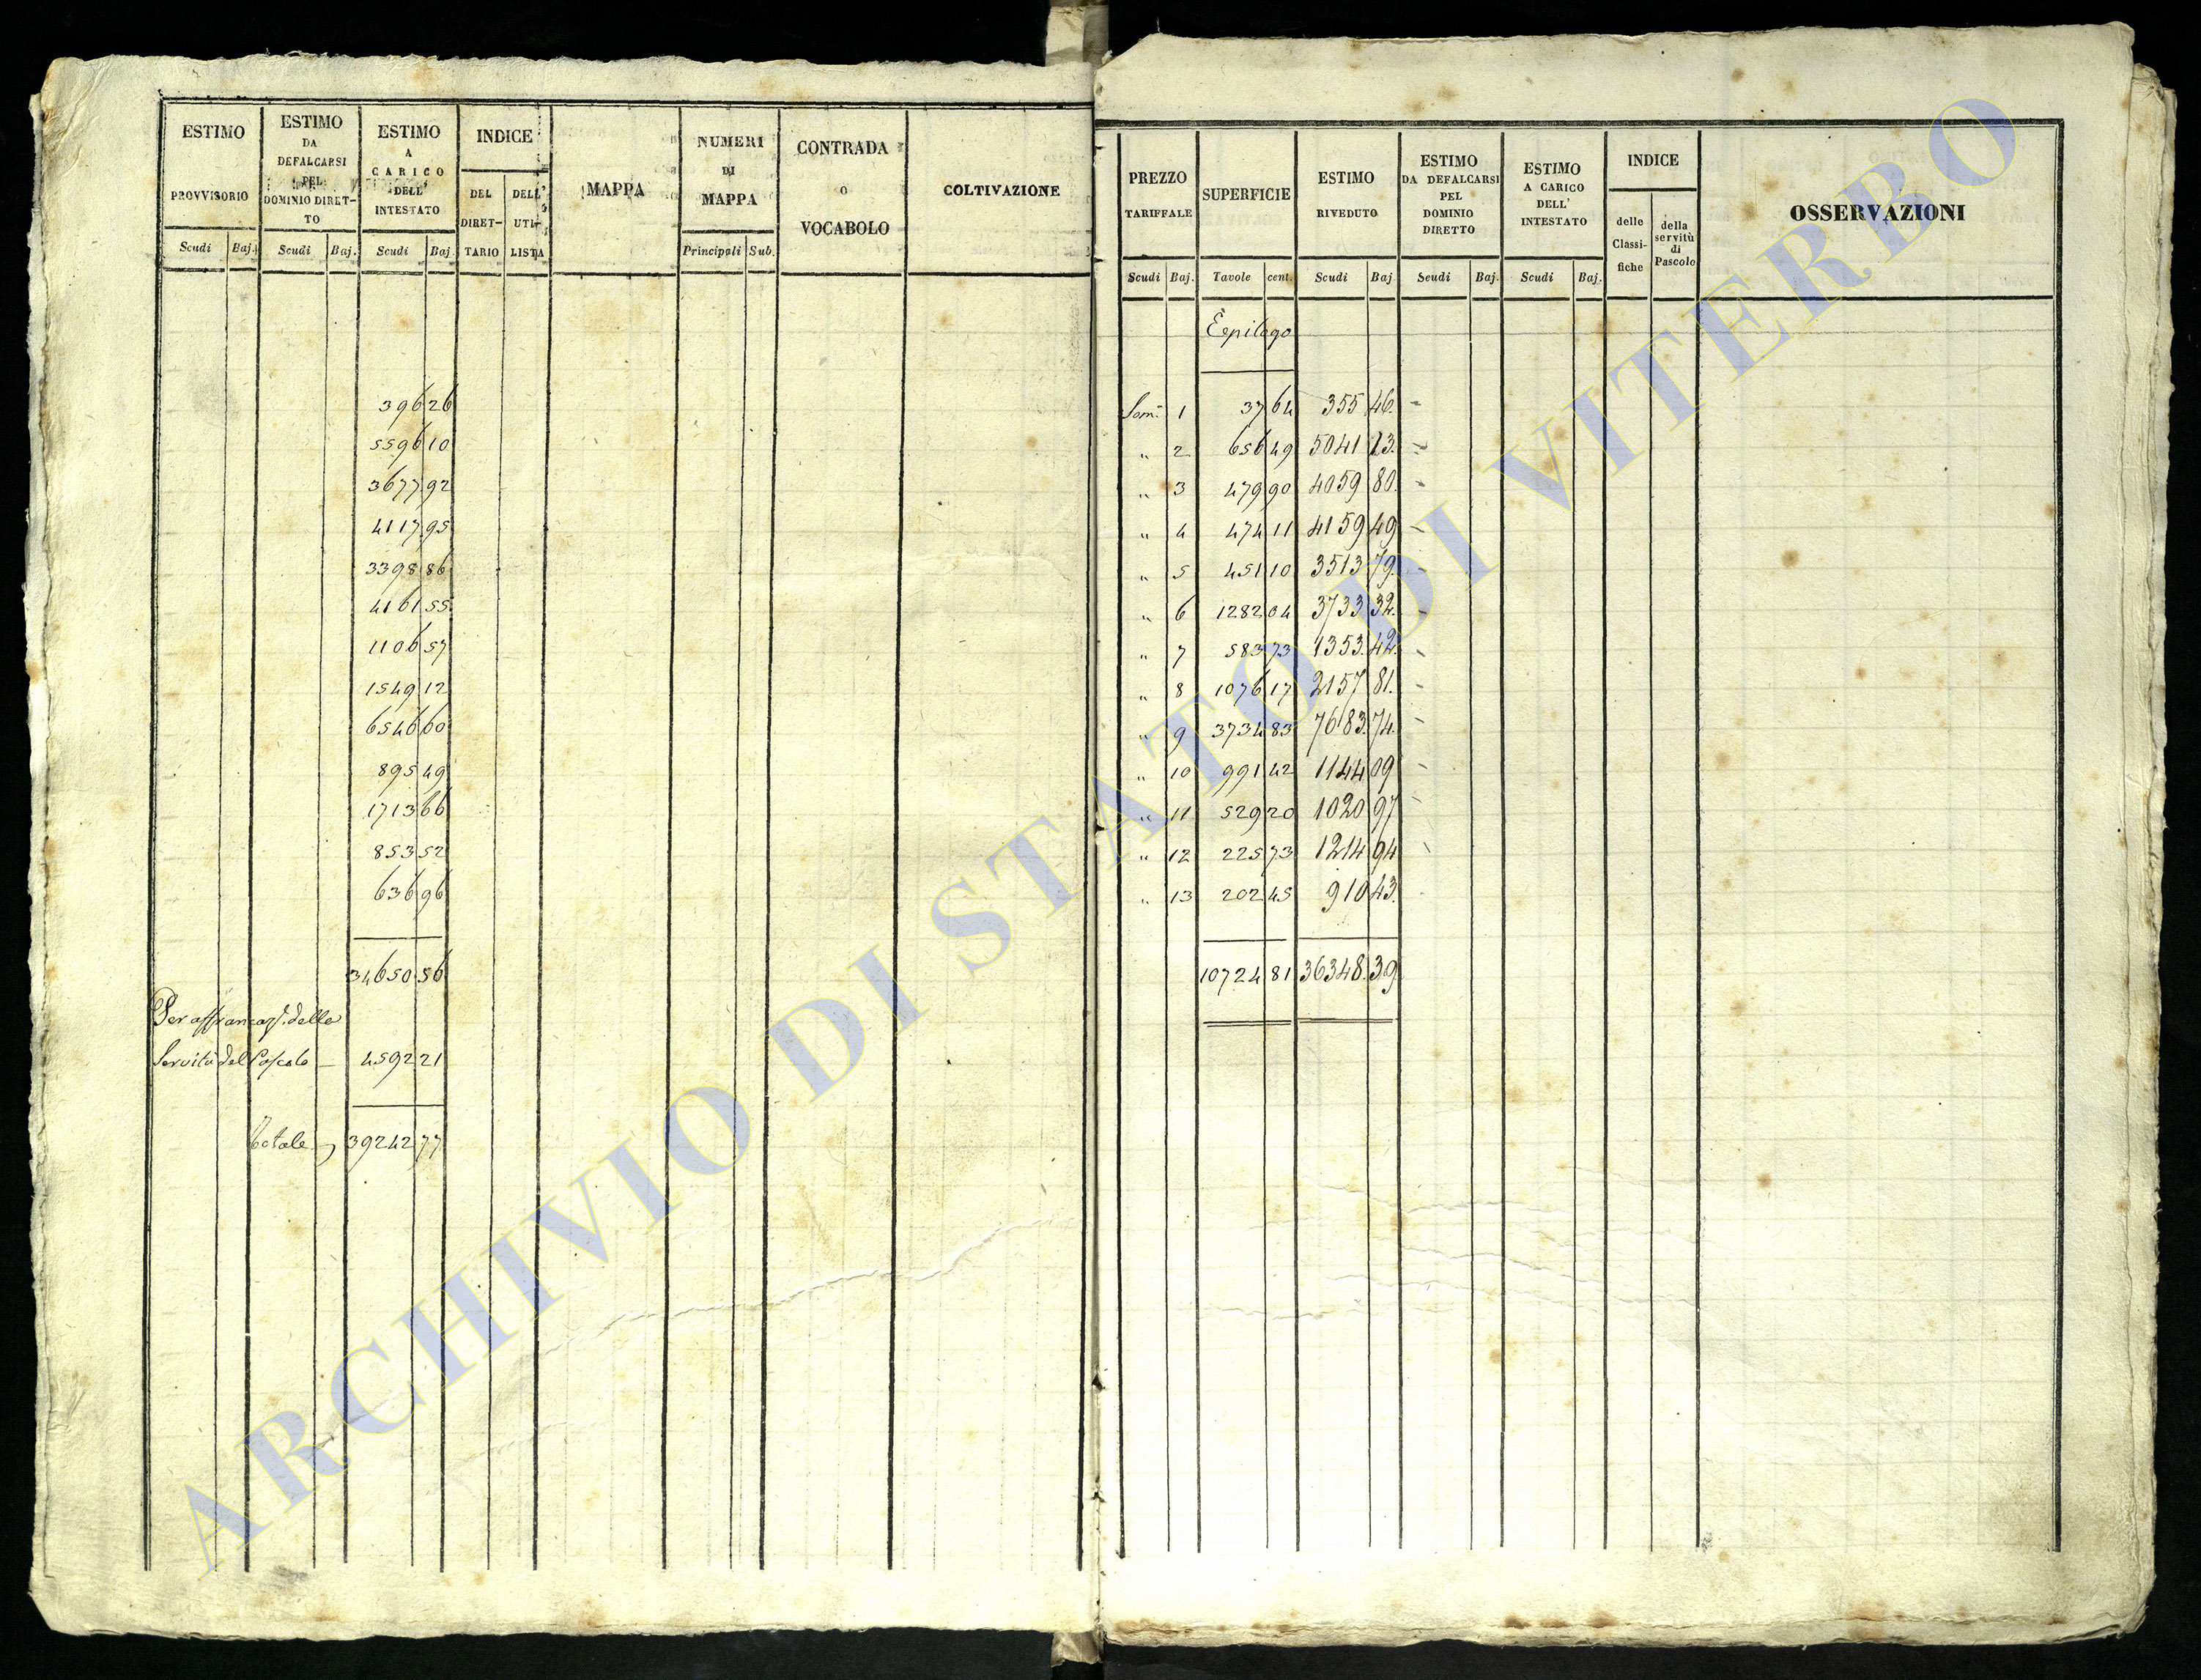 ESTIMO PROVVISORIO
Scudi Baj.
ESTIMO DA DEFALCARSI PEL DOMINIO DIRET-TO
Scudi Baj.
ESTIMO A CARICO DELL' INTESTATO
Scudi Baj.
INDICE
DEL DIRET-TARIO
DELL' UTI-LISTA
MAPPA
NUMERI DI MAPPA
Principali Sub.
CONTRADA O VOCABOLO
COLTIVAZIONE
396 26
5596 10
3677 92
4117 95
3398 86
4161 55
1106 57
1549 12
6546 60
895 49
1713 66
853 52
636 96
34650 56
Per affrancaz. delle
Servitù del Pascolo — 4592 21
Totale 39242 77
PREZZO TARIFFALE
Scudi Baj.
SUPERFICIE
Tavole cent.
ESTIMO RIVEDUTO
Scudi Baj.
ESTIMO DA DEFALCARSI PEL DOMINIO DIRETTO
Scudi Baj.
ESTIMO A CARICO DELL' INTESTATO
Scudi Baj.
INDICE
delle Classi-fiche
della servitù di Pascolo
OSSERVAZIONI
Eepilogo
Som. 1 37 64 355 46. -
" 2 656 49 5041 13. -
" 3 479 90 4059 80. -
" 4 474 11 4159 49 -
" 5 451 10 3513 79. -
" 6 1282 04 3733 32. -
" 7 583 73 1353. 42. -
" 8 1076 17 2157 81. -
" 9 3734 83 7683. 74. -
" 10 991 42 1144 09 -
" 11 529 20 1020 97 -
" 12 225 73 1214 94 -
" 13 202 45 910 43.
10724 81 36348. 39
ARCHIVIO DI STATO DI VITERBO